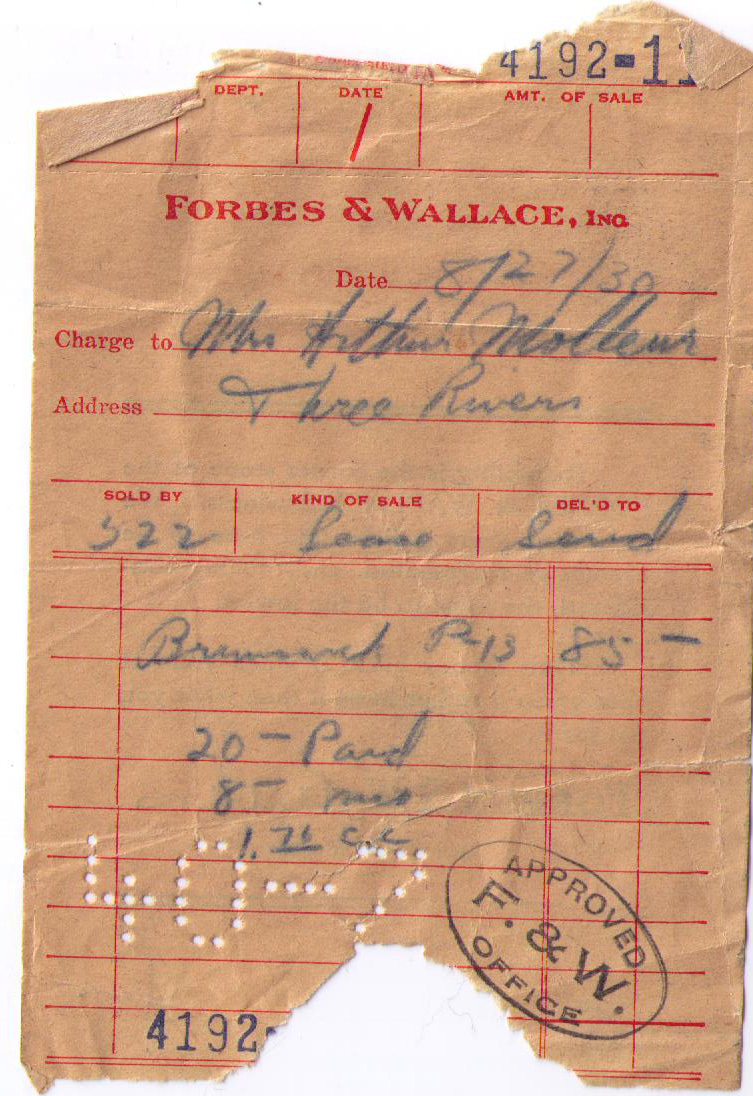 4192-11
DEPT. DATE AMT. OF SALE
/
FORBES & WALLACE, INC.
Date 8/27/30
Charge to Mrs Arthur Molleur
Address Three Rivers
SOLD BY KIND OF SALE DEL'D TO
522 Lease Send
Brunswick P-13 85 —
20 — Paid
8 — mo
1.76 c.c.
40-7
APPROVED
F. & W.
OFFICE
4192-